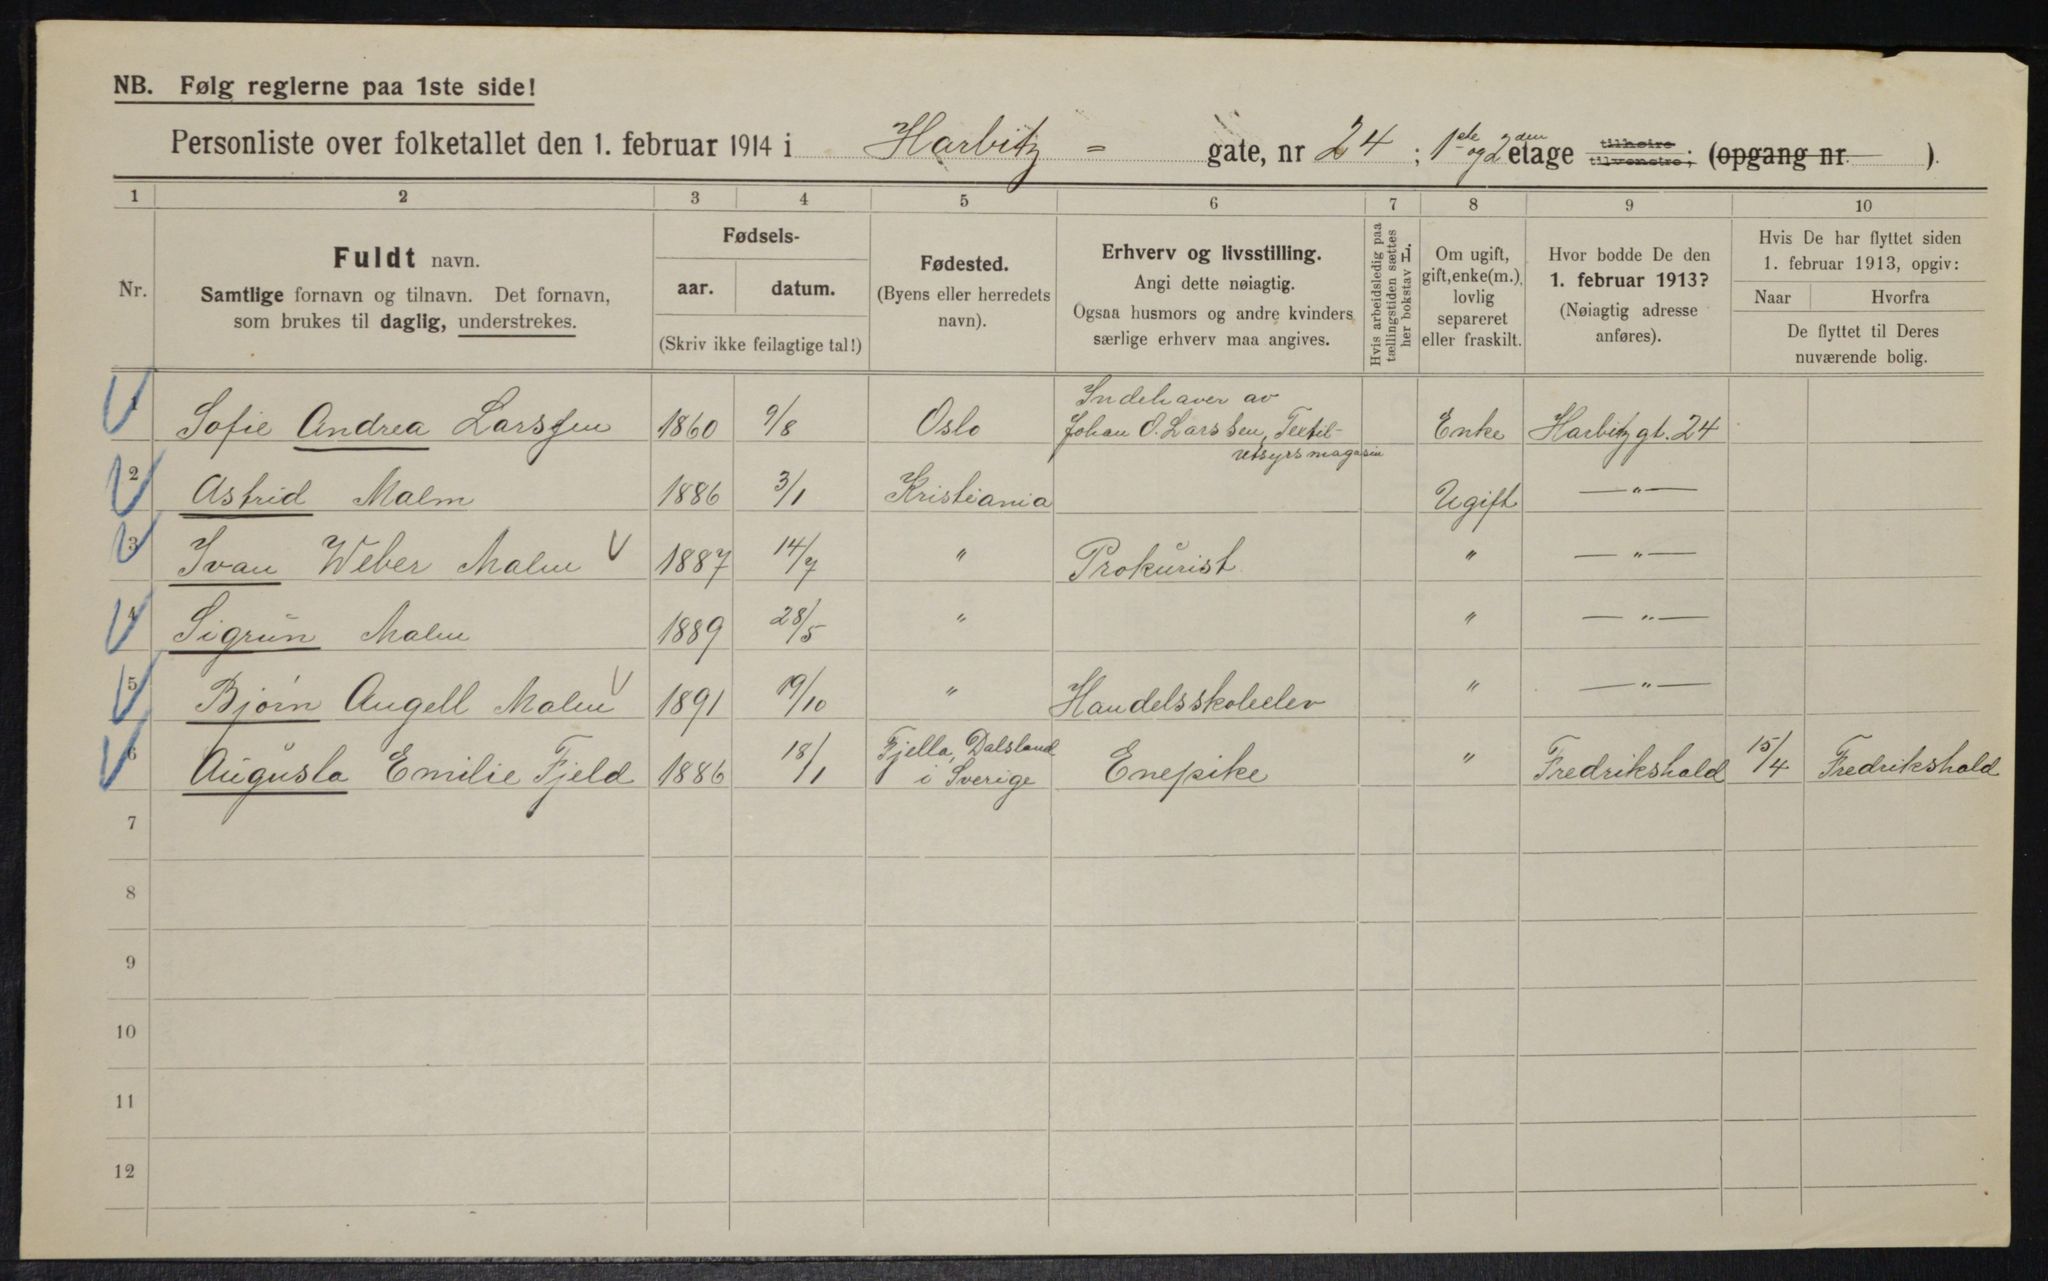 NB. Følg reglerne paa 1ste side!
Personliste over folketallet den 1. februar 1914 i Harbitz - gate, nr 24 ; 1ste og 2den etage tilhøire tilvenstre; (opgang nr. ).
1 2 3 4 5 6 7 8 9 10
Nr.
Fuldt navn.
Samtlige fornavn og tilnavn. Det fornavn,
som brukes til daglig, understrekes.
Fødsels-
aar. datum.
(Skriv ikke feilagtige tal!)
Fødested.
(Byens eller herredets
navn).
Erhverv og livsstilling.
Angi dette nøiagtig.
Ogsaa husmors og andre kvinders
særlige erhverv maa angives.
Hvis arbeidsledig paa
tællingstiden sættes
her bokstav L.
Om ugift,
gift, enke(m.),
lovlig
separeret
eller fraskilt.
Hvor bodde De den
1. februar 1913?
(Nøiagtig adresse
anføres).
Hvis De har flyttet siden
1. februar 1913, opgiv:
Naar Hvorfra
De flyttet til Deres
nuværende bolig.
1 Sofie Andrea Larssen 1860 9/8 Oslo Indehaver av
Johan O. Larssen, Textil-
utsyrsmagasin Enke Harbitzgt. 24
2 Astrid Malm 1886 3/1 Kristiania Ugift — " —
3 Ivan Weber Malm V 1887 14/7 " Prokurist " — " —
4 Sigrun Malm 1889 28/5 " " — " —
5 Bjørn Angell Malm V 1891 19/10 " Handelsskoleelev " — " —
6 Augusta Emilie Fjeld 1886 18/1 Fjella, Dalsland
i Sverige Enepike " Fredrikshald 15/4 Fredrikshald
7
8
9
10
11
12